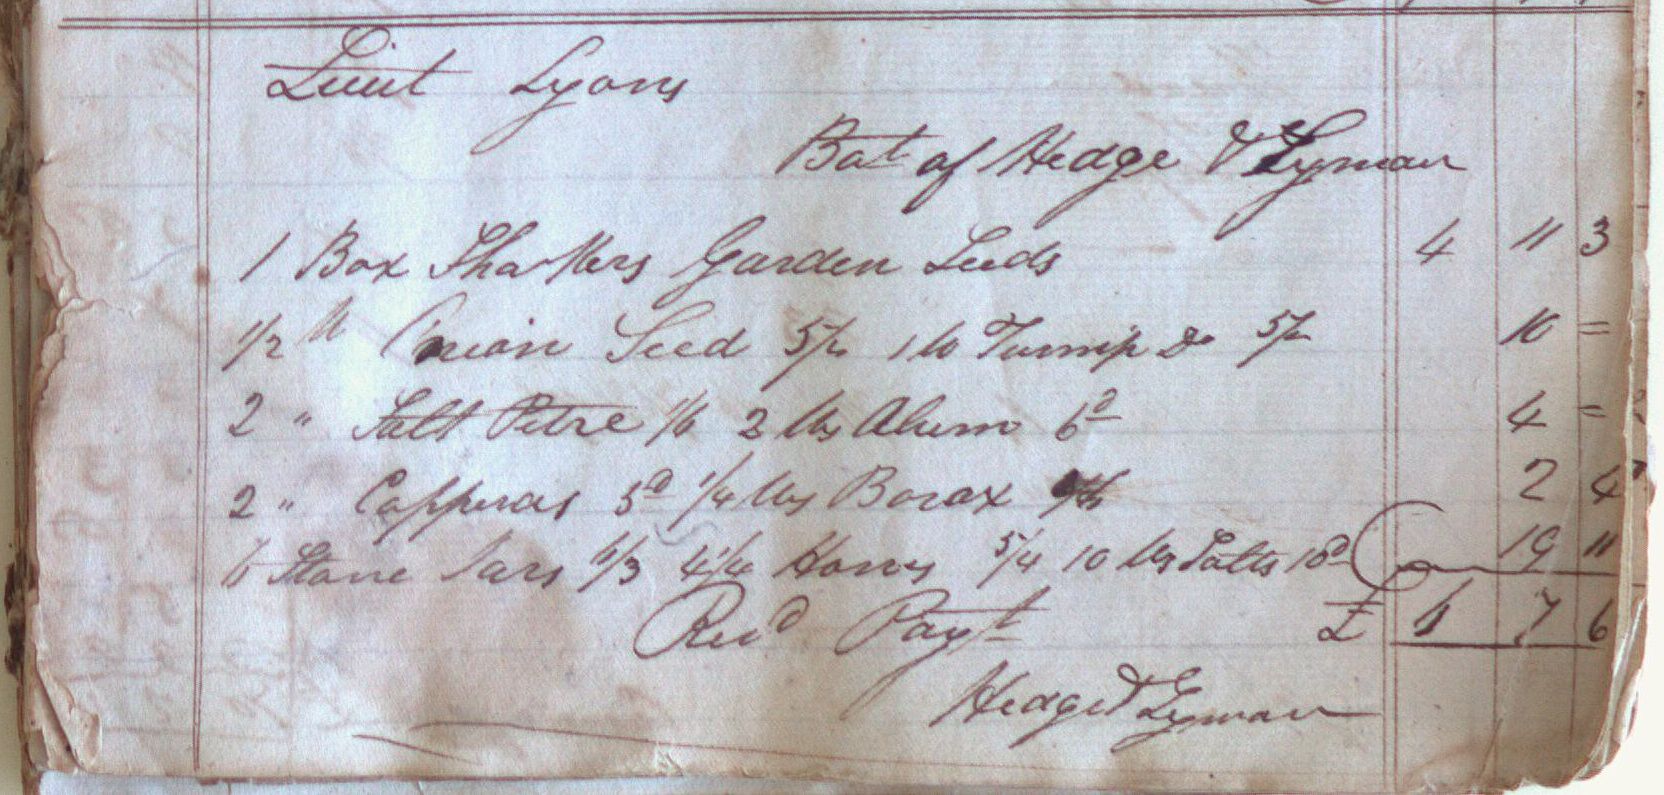 Lieut Lyons
Bot of Hedge & Lyman
1 Box Shakers Garden Seeds 4 11 3
1/2 lb Onion Seed 5/- 1 lb Turnip Do 5/- 10 =
2 " Salt Petre 1/6 2 lbs Alum 6d 4 =
2 " Copperas 5d 1/4 lbs Borax 2 4
6 Stone Jars 4 1/4 Honey 5/4 10 lbs Salts 10d 19 11
Recd Payt £ 6 7 6
Hedge & Lyman